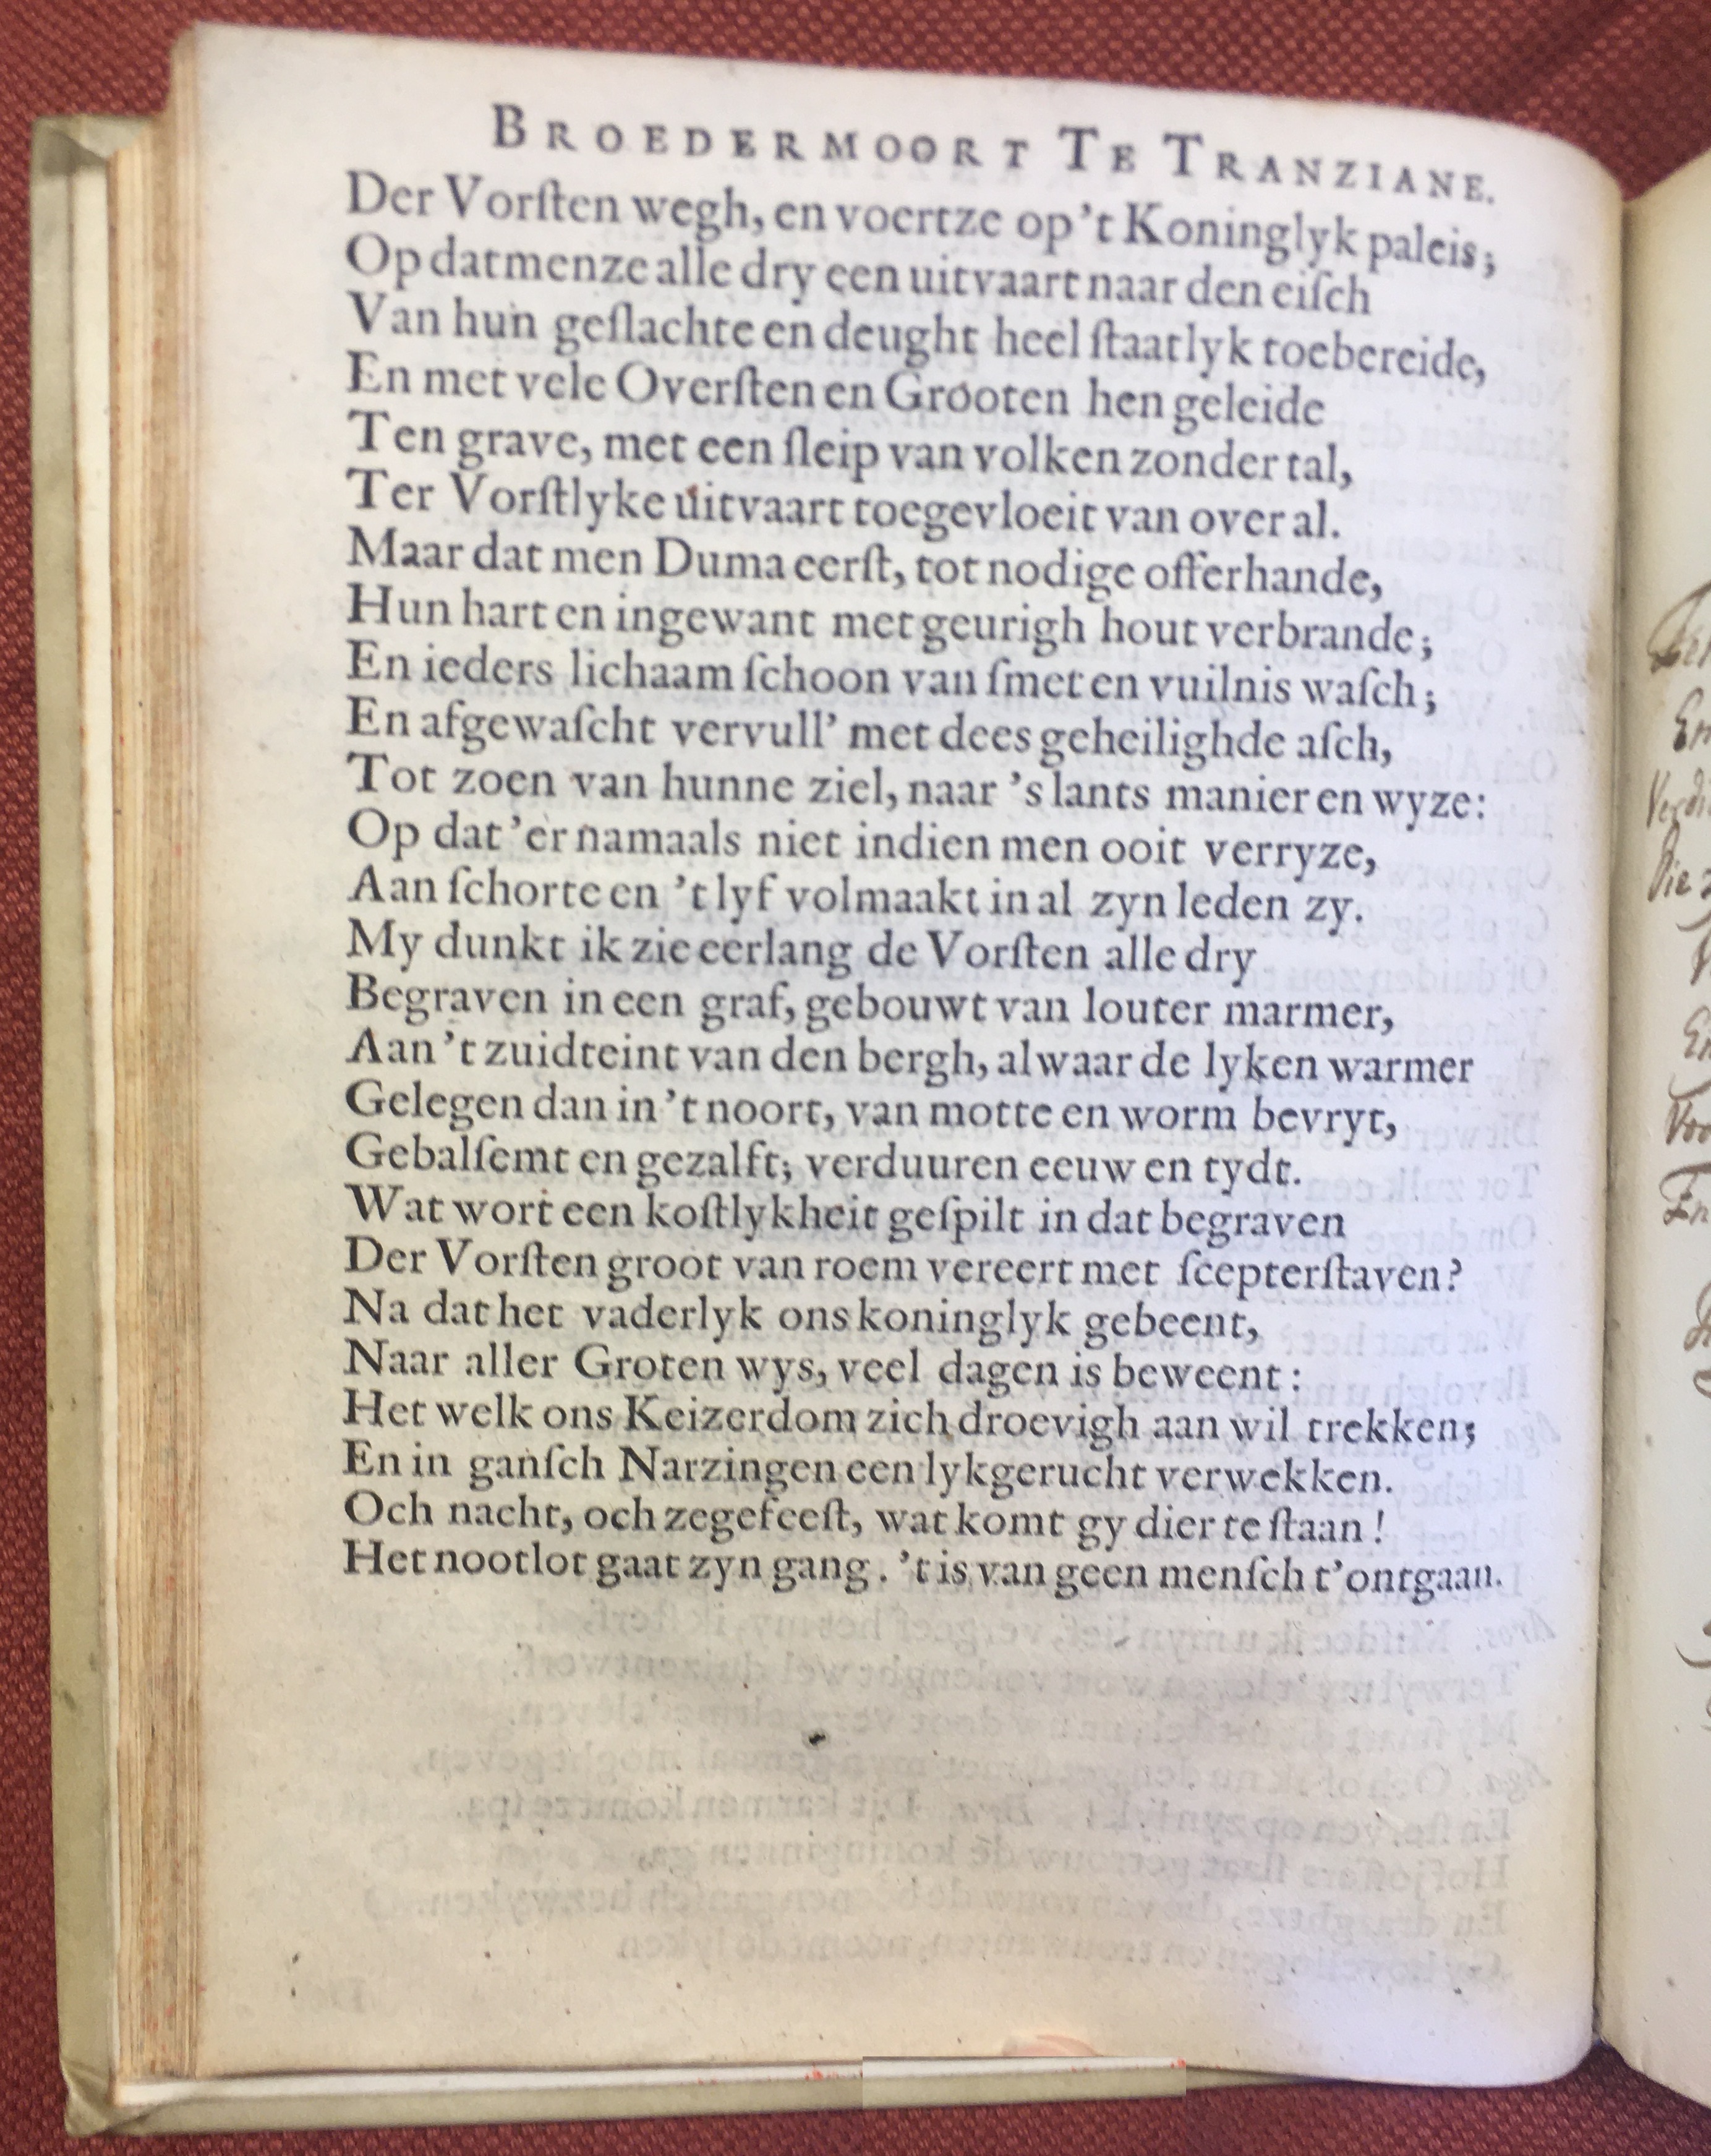 BROEDERMOORT TE TRANZIANE.
Der Vorſten wegh, en voertze op 't Koninglyk paleis;
Op datmenze alle dry een uitvaart naar den eiſch
Van hun geſlachte en deught heel ſtaatlyk toebereide,
En met vele Overſten en Grooten hen geleide
Ten grave, met een ſleip van volken zonder tal,
Ter Vorſtlyke uitvaart toegevloeit van over al.
Maar dat men Duma eerſt, tot nodige offerhande,
Hun hart en ingewant met geurigh hout verbrande;
En ieders lichaam ſchoon van ſmet en vuilnis waſch;
En afgewaſcht vervull' met dees geheilighde aſch,
Tot zoen van hunne ziel, naar 's lants manier en wyze:
Op dat 'er namaals niet indien men ooit verryze,
Aan ſchorte en 't lyf volmaakt in al zyn leden zy.
My dunkt ik zie eerlang de Vorſten alle dry
Begraven in een graf, gebouwt van louter marmer,
Aan 't zuidteint van den bergh, alwaar de lyken warmer
Gelegen dan in 't noort, van motte en worm bevryt,
Gebalſemt en gezalft; verduuren eeuw en tydt.
Wat wort een koſtlykheit geſpilt in dat begraven
Der Vorſten groot van roem vereert met ſcepterſtaven?
Na dat het vaderlyk ons koninglyk gebeent,
Naar aller Groten wys, veel dagen is beweent:
Het welk ons Keizerdom zich droevigh aan wil trekken;
En in ganſch Narzingen een lykgerucht verwekken.
Och nacht, och zegefeeſt, wat komt gy dier te ſtaan!
Het nootlot gaat zyn gang. 't is van geen menſch t'ontgaan.